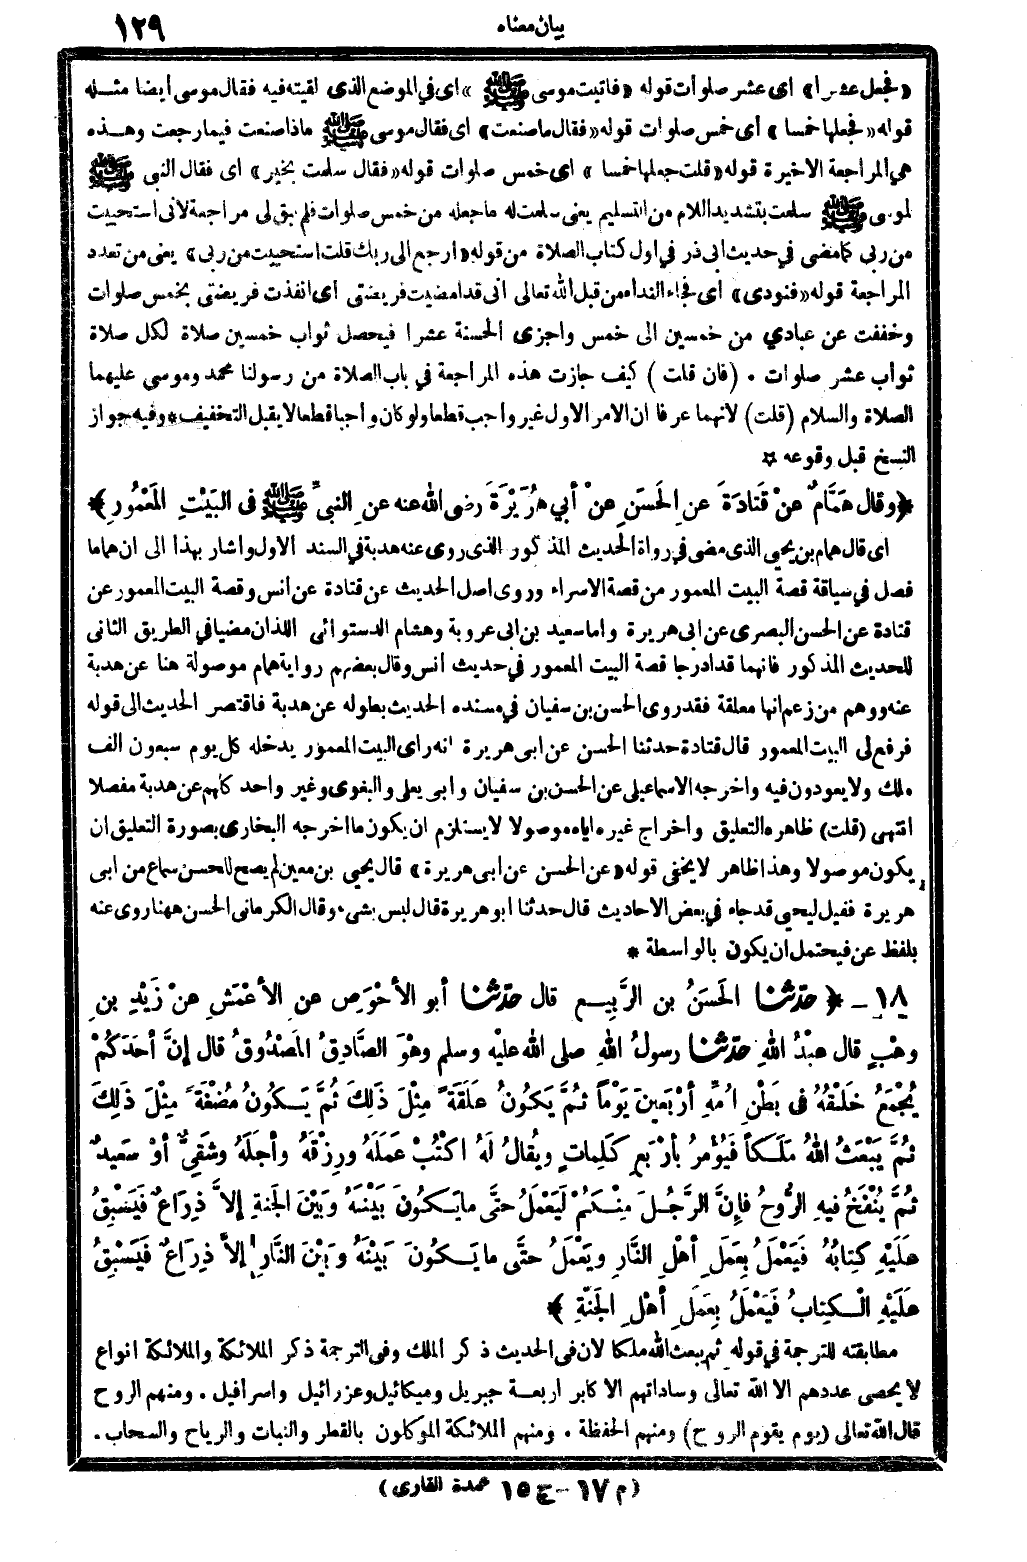 بيان معناه ١٢٩
«فجعل عشرا» اى عشر صلوات قوله «فاتيت موسى ﷺ» اى في الموضع الذى لقيته فيه فقال موسى أيضا مثله
قوله «فجعلها خمسا» أى خمس صلوات قوله «فقال ما صنعت» اى فقال موسى ﷺ ماذا صنعت فيما رجعت وهذه
هي المراجعة الاخيرة قوله «قلت جعلها خمسا» اى خمس صلوات قوله «فقال سلمت بخير» اى فقال النبى ﷺ
لموسى ﷺ سلمت بتشديد اللام من التسليم يعنى سلمت له ما جعله من خمس صلوات فلم يبق لى مراجعة لأنى استحييت
من ربى كما مضى في حديث ابى ذر في اول كتاب الصلاة من قوله «ارجع الى ربك قلت استحييت من ربى» يعنى من تعدد
المراجعة قوله «فنودى» أى فجاء النداء من قبل الله تعالى انى قد امضيت فريضتى أى انفذت فريضتى بخمس صلوات
وخففت عن عبادي من خمسين الى خمس واجزى الحسنة عشرا فيحصل ثواب خمسين صلاة لكل صلاة
ثواب عشر صلوات . (فان قلت) كيف جازت هذه المراجعة في باب الصلاة من رسولنا محمد وموسى عليهما
الصلاة والسلام (قلت) لانهما عرفا ان الامر الاول غير واجب قطعا ولو كان واجبا قطعا لا يقبل التخفيف * وفيه جواز
النسخ قبل وقوعه *
﴿وقال هَمَّامٌ عنْ قَتَادَةَ عنِ الحَسَنِ عنْ أبي هُرَيْرَةَ رضى الله عنه عنِ النبىِّ ﷺ فى البَيْتِ المَعْمُورِ﴾
اى قال همام بن يحيى الذى مضى في رواة الحديث المذكور الذى روى عنه هدبة في السند الاول واشار بهذا الى ان هماما
فصل في سياقة قصة البيت المعمور من قصة الاسراء وروى اصل الحديث عن قتادة عن انس وقصة البيت المعمور عن
قتادة عن الحسن البصرى عن ابى هريرة واما سعيد بن ابى عروبة وهشام الدستوائى اللذان مضيا في الطريق الثانى
للحديث المذكور فانهما قد ادرجا قصة البيت المعمور في حديث انس وقال بعضهم رواية همام موصولة هنا عن هدبة
عنه ووهم من زعم انها معلقة فقد روى الحسن بن سفيان في مسنده الحديث بطوله عن هدبة فاقتصر الحديث الى قوله
فرفع لى البيت المعمور قال قتادة حدثنا الحسن عن ابى هريرة انه راى البيت المعمور يدخله كل يوم سبعون الف
ملك ولا يعودون فيه واخرجه الاسماعيلى عن الحسن بن سفيان وابى يعلى والبغوى وغير واحد كلهم عن هدبة مفصلا
انتهى (قلت) ظاهره التعليق واخراج غيره اياه موصولا لا يستلزم ان يكون ما اخرجه البخارى بصورة التعليق ان
يكون موصولا وهذا ظاهر لا يخفى قوله «عن الحسن عن ابى هريرة» قال يحيى بن معين لم يصح للحسن سماع من ابى
هريرة فقيل ليحيى قد جاء في بعض الاحاديث قال حدثنا ابو هريرة قال ليس بشىء وقال الكرمانى الحسن ههنا روى عنه
بلفظ عن فيحتمل ان يكون بالواسطة *
١٨ - ﴿حدّثنا الحَسَنُ بن الرَّبِيعِ قال حدّثنا أبو الأحْوَصِ عنِ الأعْمَشِ عنْ زَيْدِ بنِ
وهْبٍ قال عبْدُ اللهِ حدّثنا رسولُ اللهِ صلى الله عليْه وسلم وهْوَ الصَّادِقُ المَصْدُوقُ قال إنَّ أحَدَكُمْ
يُجْمَعُ خَلْقُهُ فى بَطْنِ امِّهِ أرْبَعينَ يَوْماً ثُمَّ يَكُونُ علَقَةً مِثْلَ ذَلِكَ ثُمَّ يَكُونُ مُضْغَةً مِثْلَ ذَلِكَ
ثُمَّ يَبْعَثُ اللهُ مَلَكاً فَيُؤْمرُ بأرْبَعِ كَلِماتٍ ويُقالُ لَهُ اكْتُبْ عَمَلَهُ ورِزْقَهُ وأجَلَهُ وشَقىٌّ أوْ سَعيدٌ
ثُمَّ يُنْفَخُ فيهِ الرُّوحُ فإنَّ الرَّجُلَ مِنْكُمْ لَيَعْمَلُ حتَّى ما يَكُونَ بَيْنَهُ وبَيْنَ الجَنةِ إلاَّ ذِرَاعٌ فَيَسْبِقُ
علَيْهِ كِتابُهُ فَيَعْمَلُ بِعَمَلِ أهْلِ النَّارِ ويَعْمَلُ حتَّى ما يَكُونَ بَيْنَهُ وبَيْنَ النَّارِ إلاَّ ذِرَاعٌ فَيَسْبِقُ
علَيْهِ الْكِتابُ فَيَعْمَلُ بِعَمَلِ أهْلِ الجَنَّةِ﴾
مطابقته للترجمة في قوله ثم يبعث الله ملكا لان فى الحديث ذكر الملك وفى الترجمة ذكر الملائكة والملائكة انواع
لا يحصى عددهم الا الله تعالى وساداتهم الاكابر اربعة جبريل وميكائيل وعزرائيل واسرافيل . ومنهم الروح
قال الله تعالى (يوم يقوم الروح) ومنهم الحفظة . ومنهم الملائكة الموكلون بالقطر والنبات والرياح والسحاب .
(م ١٧ - ج ١٥ عمدة القارى)